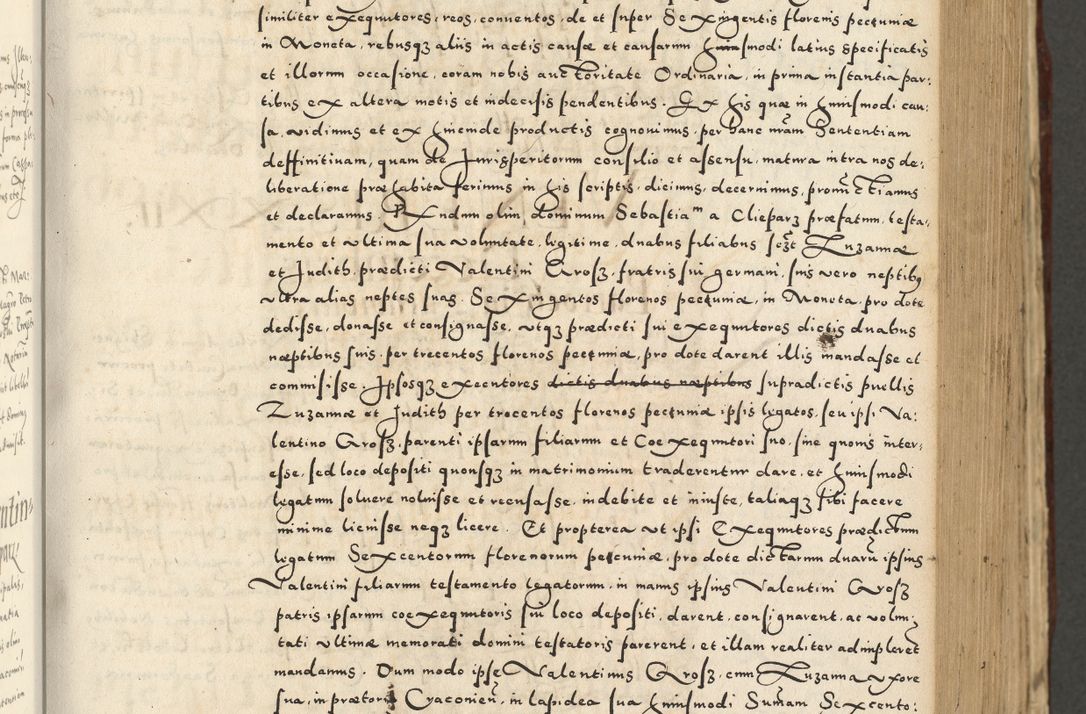 similiter exequutores, reos, conventos, de et super Sexingentis florenis pecuniæ
in Moneta, rebusqz aliis in actis causæ et causarum huiusmodi latius specificatis
et illorum occasione, coram nobis auctoritate Ordinaria, in prima instantia par:
tibus ex altera motis et indecisis pendentibus. Ex his quæ in huiusmodi cau:
sa, vidimus et ex hincinde productis cognovimus, per hanc nr̃am Sententiam
deffinitivam, quam de Jurisperitorum consilio et assensu, matura intra nos de:
liberatione præhabita ferimus in his scriptis, dicimus, decernimus, pronũctiamus
et declaramus. Rx̃ndum olim dominum Sebastiam a Clieparz præfatum, testa:
mento et ultima sua voluntate, legitime, duabus filiabus scz̃t Zuzannæ
et Judith, prædicti Valentini Grosz, fratris sui germani, suis vero neptibus
ultra alias neptes suas, Sexingentos florenos pecuniæ, in Moneta, pro dote
dedisse, donasse et consignasse, utqz prædicti sui exequutores dictis duabus
næptibus suis, per trecentos florenos pecuniæ, pro dote darent illis mandasse et
commisisse. Ipsosqz executores dictis duabus næptibus supradictis puellis
Zuzannæ et Judith per trocentos florenos pecuniæ ipsis legatos, seu ipsi Va:
lentino Grosz, parenti ipsarum filiarum et Coexequutori suo, sine quovis inter:
esse, sed loco depositi quousqz in matrimonium traderentur dare, et huiusmodi
legatum solvere noluisse et recusasse, indebite et iniuste, taliaqz sibi facere
minime licuisse neqz licere. Et propterea ut ipsi Exequutores prædictum
legatum Sexcentorum florenorum pecuniæ, pro dote dictarum duarũ ipsius
Valentini filiarum testamento legatorum, in manus ipsius Valentini Grosz
patris ipsarum coexequutoris sui loco depositi, darent, consignarent, ac volun:
tati ultimæ memorati domini testatoris parerent, et illam realiter adimplerẽt
mandamus. Dum modo ipse Valentinus Grosz, cum Zuzanna uxore
sua, in prætorio Cracovieñ, in lapidea sua huiusmodi Sum̃am Sexcento: